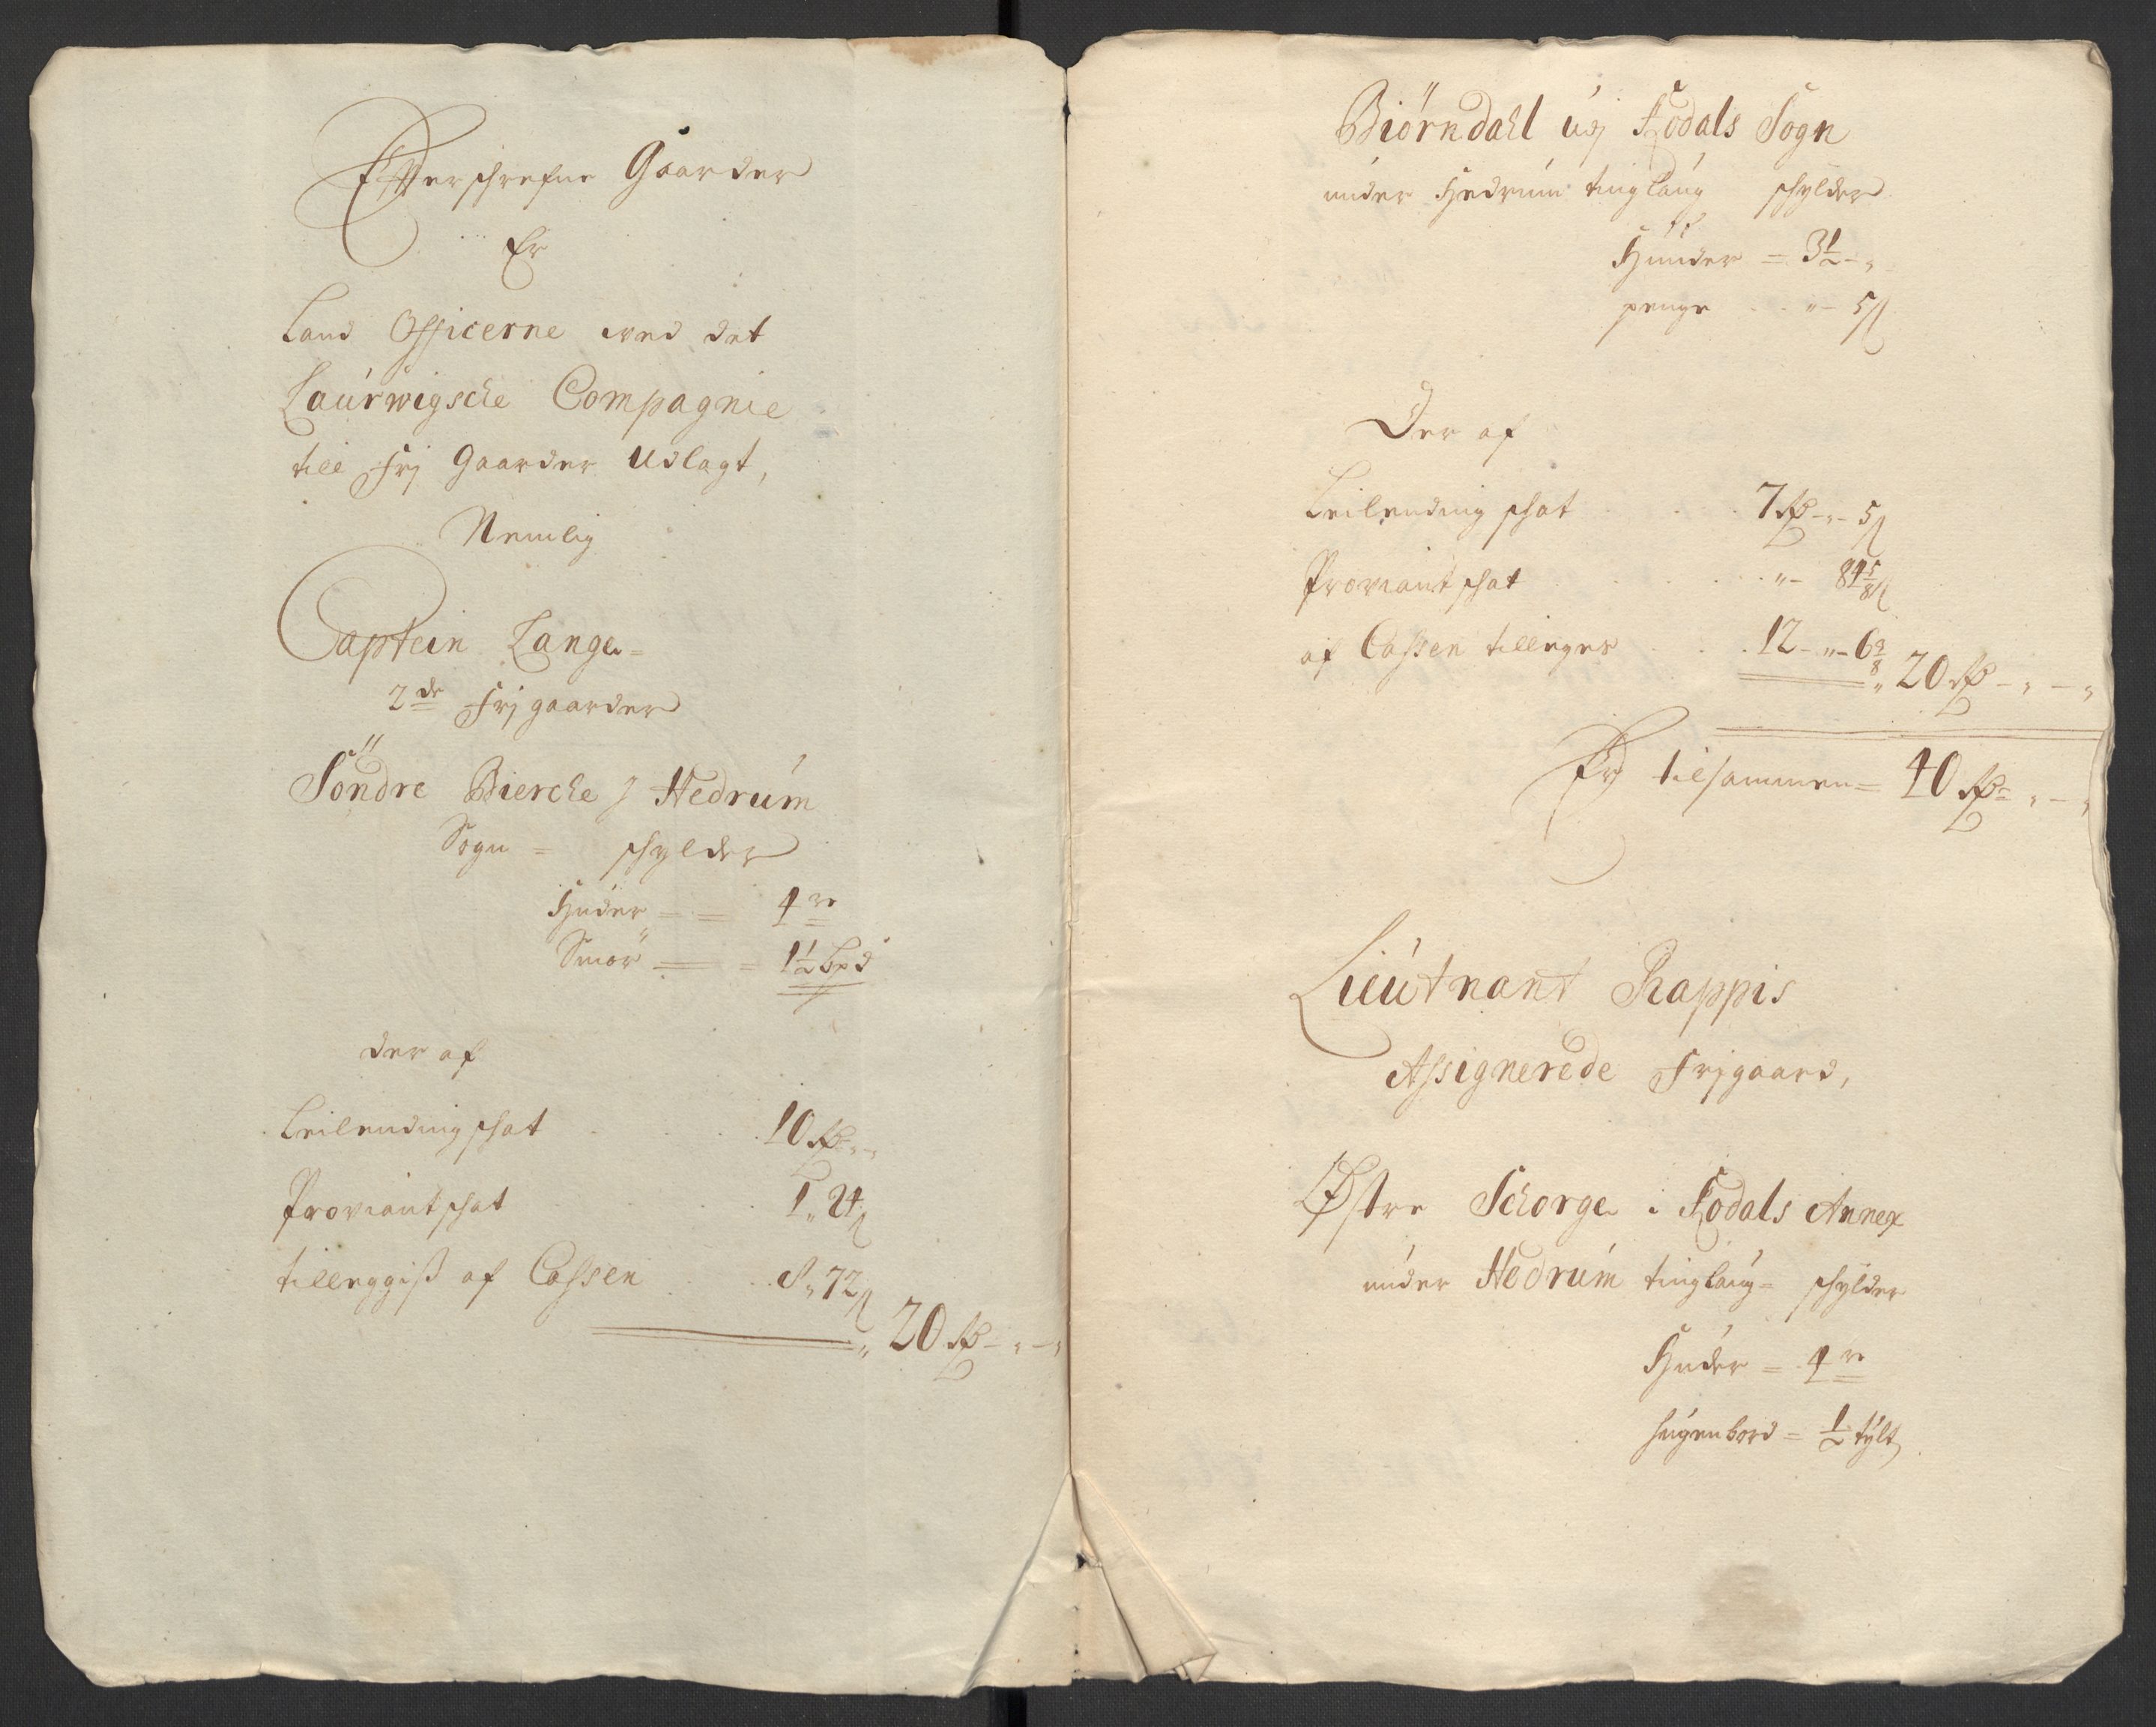 Effterschrefne Gaarder
Er
Land Officerne ved det
Laurwigsche Compagnie
till Frj Gaarder Udlagt,
Nemlig
Captein Lange =
2de Frj gaarder
Söndre Bierche J Hedrum
Sogn = schylder
Huder = = 4re
Smör = = 1½ Lpd
der af
Leilending schat . . . 10 rdr - -
Proviant schat . . 1 „ 24 s
tilleggiß af Cassen . . 8 „ 72 s
„ 20 rdr - „ - „
Biörndahl udj Kodals Sogn
under Hedrum tinglaug schylder
Hunder = 3½ - „
penge . . „ - 5 s
Der af
Leilending schat . . . 7 rdr - „ - 5 s
Proviant schat . . . „ - 84 5/8 s
af Cassen tilleges . . . 12 - „ - 6 3/8
„ 20 rdr - „ - „
Er tilsammen = 40 rdr = „ - „
Lieutnant Rappis
Assignerede Frjgaard,
Østre Schorge i Kodals Annex
under Hedrum tinglaug = schylder
Huder = 4re
hugenbord = ½ tylt